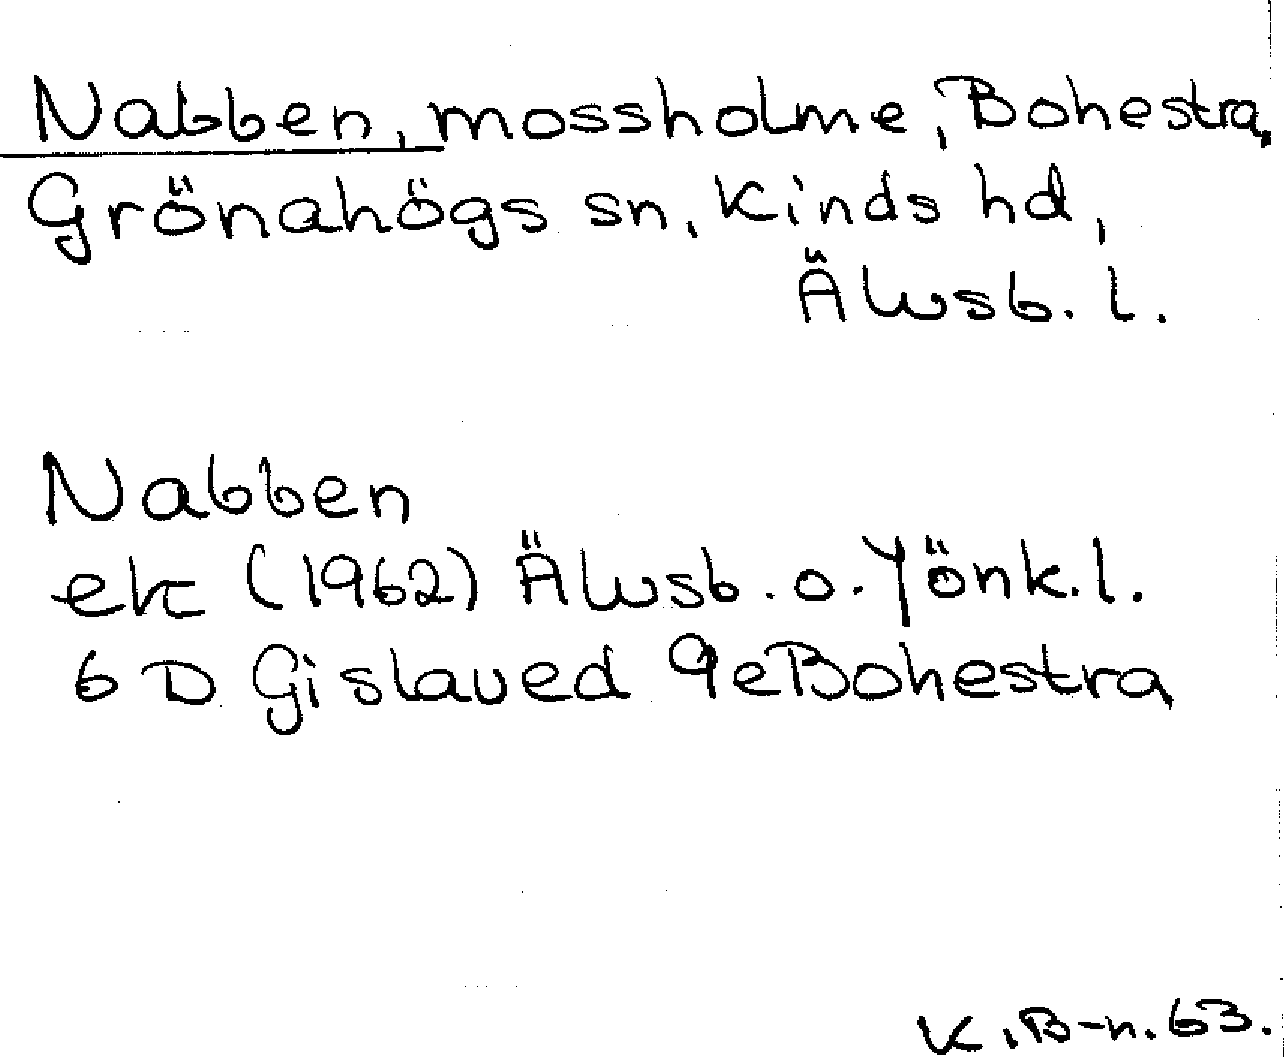 Nabben, mossholme, Bohestra,
Grönahögs sn, Kinds hd,
Älvsb. l.
Nabben
ek (1962) Älvsb. o. Jönk. l.
6 D Gislaved 9e Bohestra
K. B-n. 63.